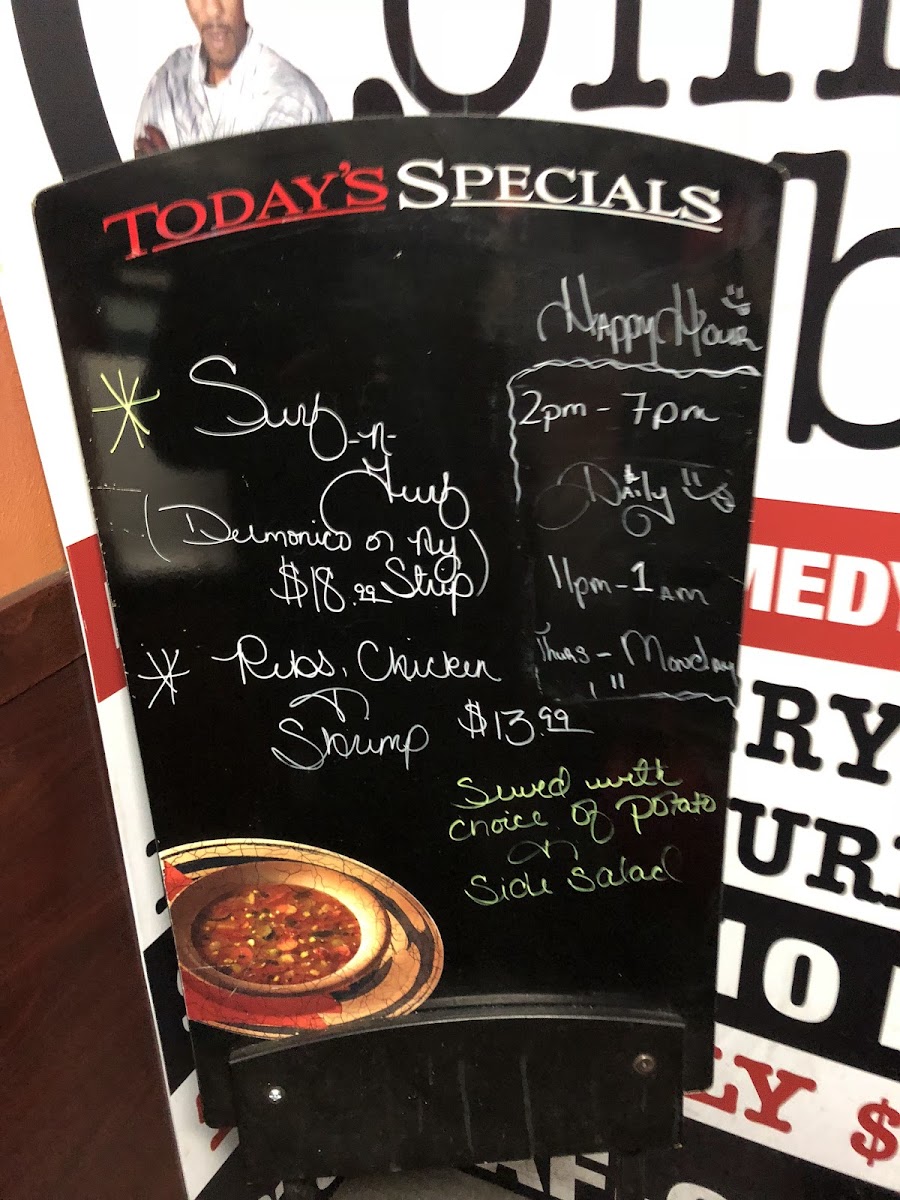 TODAY'S SPECIALS
Happy Hour
2pm - 7pm
Daily
11pm - 1am
Thurs - Monday
Surf
-n-
Turf
(Delmonico or Ny
$18.99 Strip)
Ribs, Chicken
n
Shrimp $13.99
Served with
choice of potato
n
Side Salad
b
MEDY
RY
UR
10
LY $